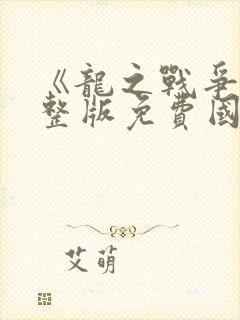 《龍之戰爭
整版免費國
艾萌